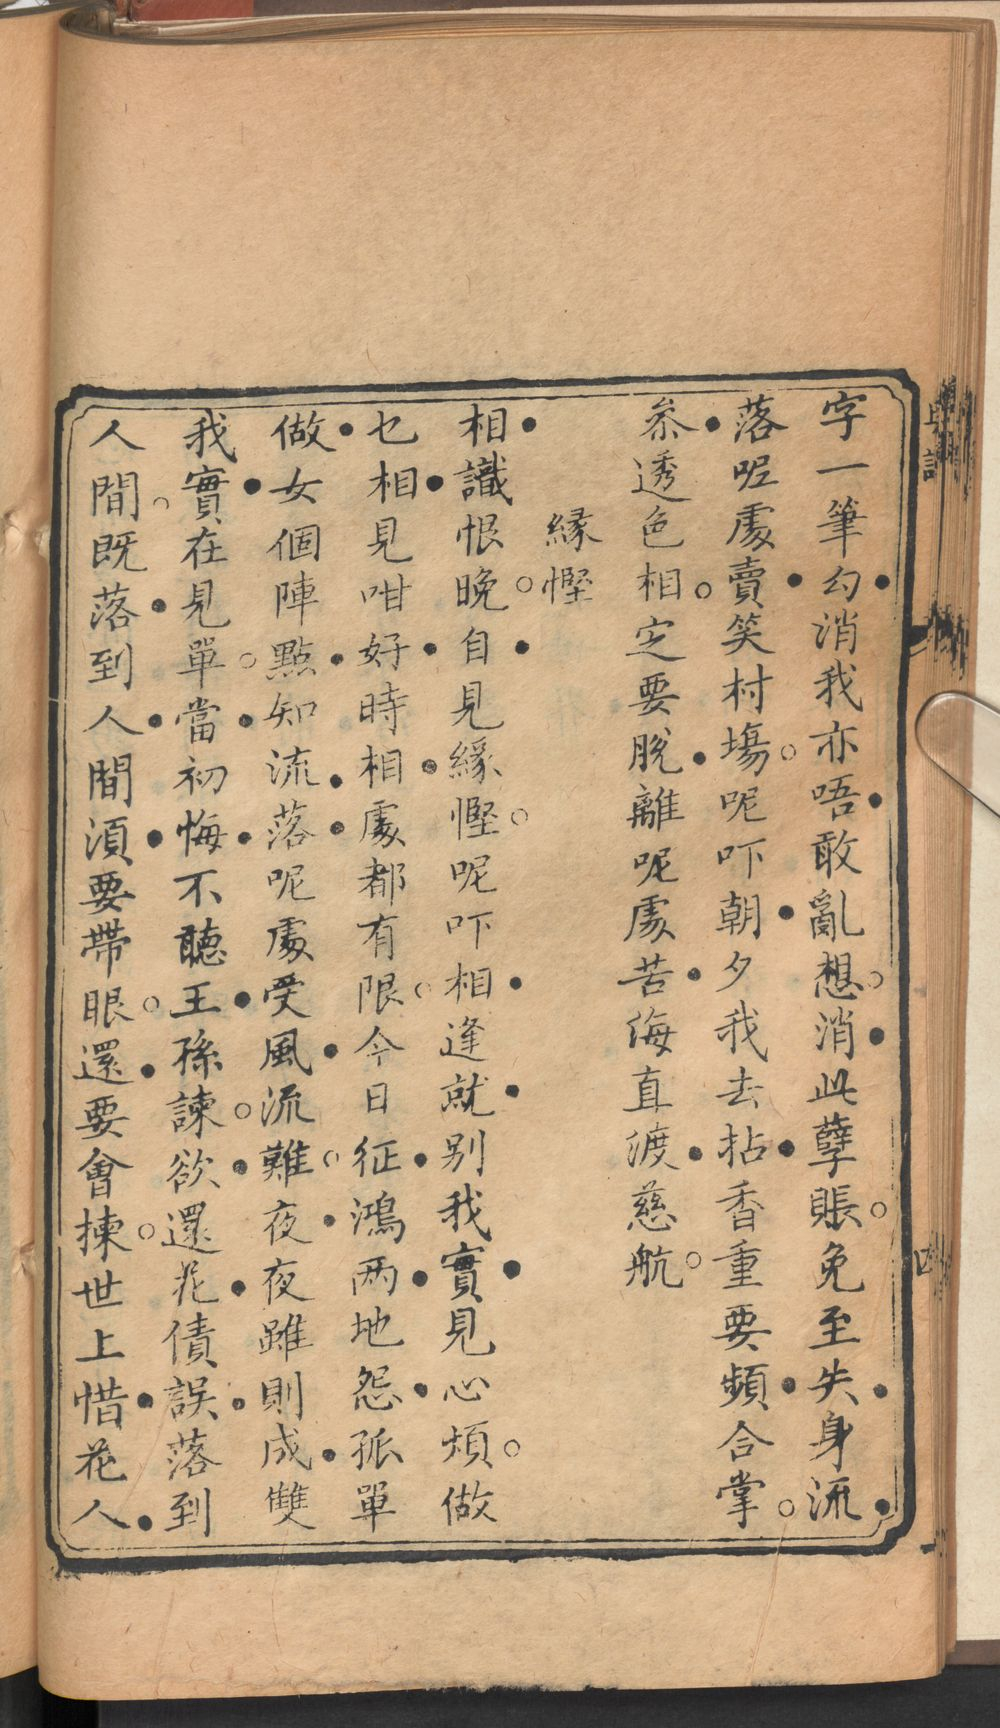 字一筆勾消我亦唔敢亂想消此孽賬免至失身流
落呢處賣笑村塲呢吓朝夕我去拈香重要頻合掌
叅透色相定要脫離呢處苦海直渡慈航
緣慳
相識恨晚自見緣慳呢吓相逢就别我實見心煩做
乜相見咁好時相處都有限今日征鴻兩地怨孤單
做女個陣點知流落呢處受風流難夜夜雖則成雙
我實在見單當初悔不聽王孫諫欲還花債誤落到
人間既落到人間湏要帶眼還要會揀世上惜花人